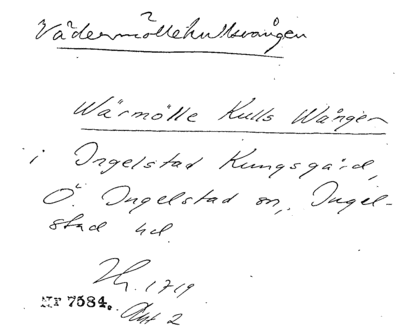 Vädermöllekullsvången
Wärmölle Kulls Wången
i Ingelstad Kungsgård,
Ö. Ingelstad sn, Ingel-
stad hd
Lh. 1719
Akt 2
Nr 7584.